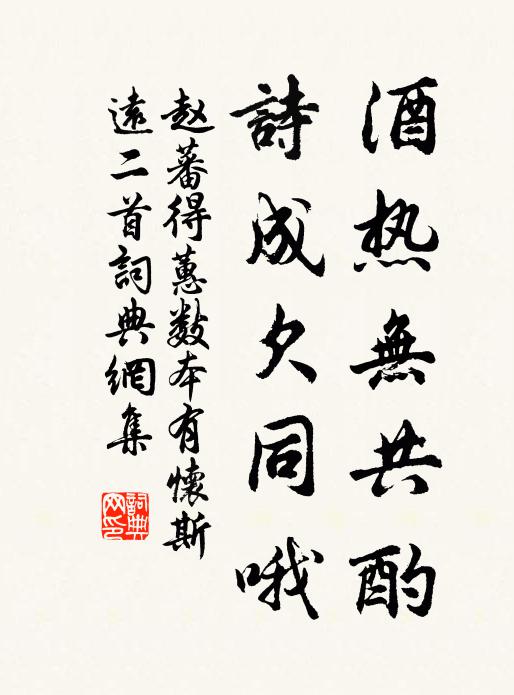 酒热無共酌
詩成欠同哦
赵蕃得蕙数本有懷斯
遠二首詞典網集
詞典網印